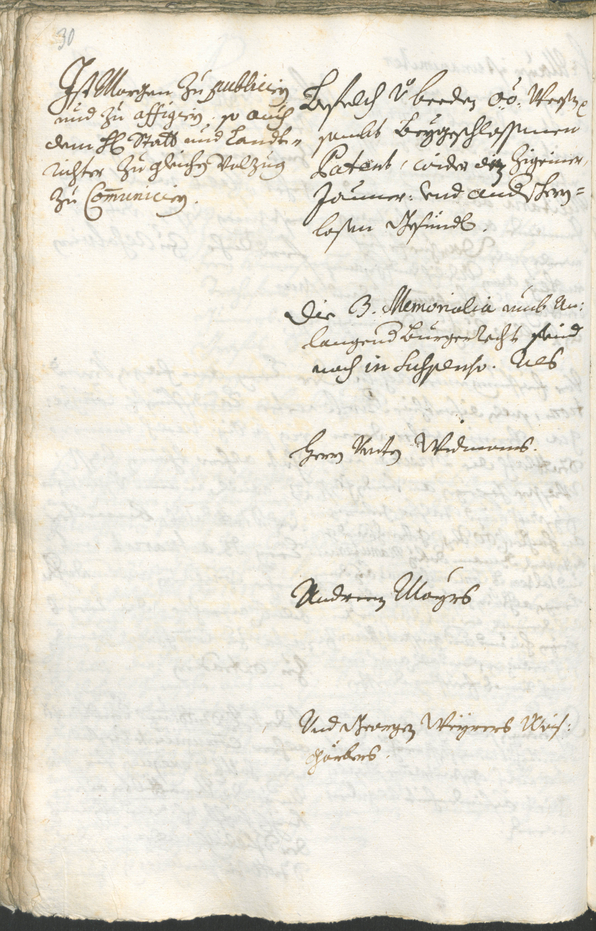 30
Ist Morgen zu publiciern
und zu affigiern, so auch
dem H: Statt und Landt=
richter zu gleichen Volzug
zu Communiciern.
Befelch beeder oö: Wesen
sambt beygeschlossnen
Patent, wider die Zigeiner,
Jauner: und andere herrn=
losen Gesindl.
Die 3. Memorialia umb an:
langend Burgerrecht seind
noch in Suspenso. als
Herrn Widmans.
Andreen Mayrs
Und Georgen Weyrers Weis:
gärbers.